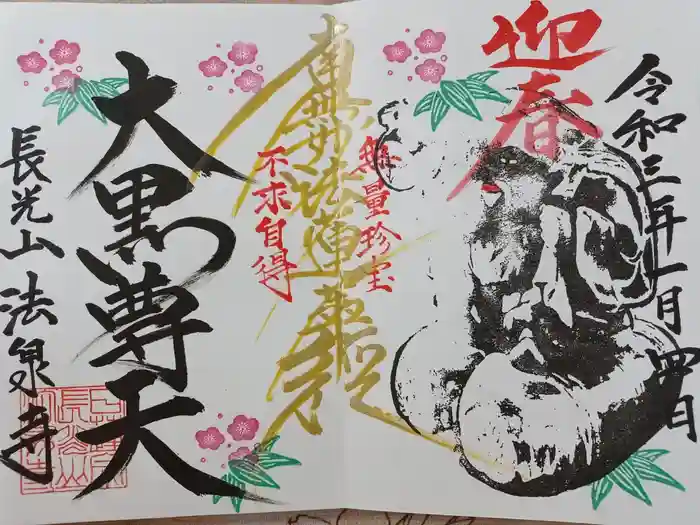 迎春
令和三年一月四日
無量珍宝
不求自得
南無妙法蓮華経
大黒尊天
長光山 法泉寺